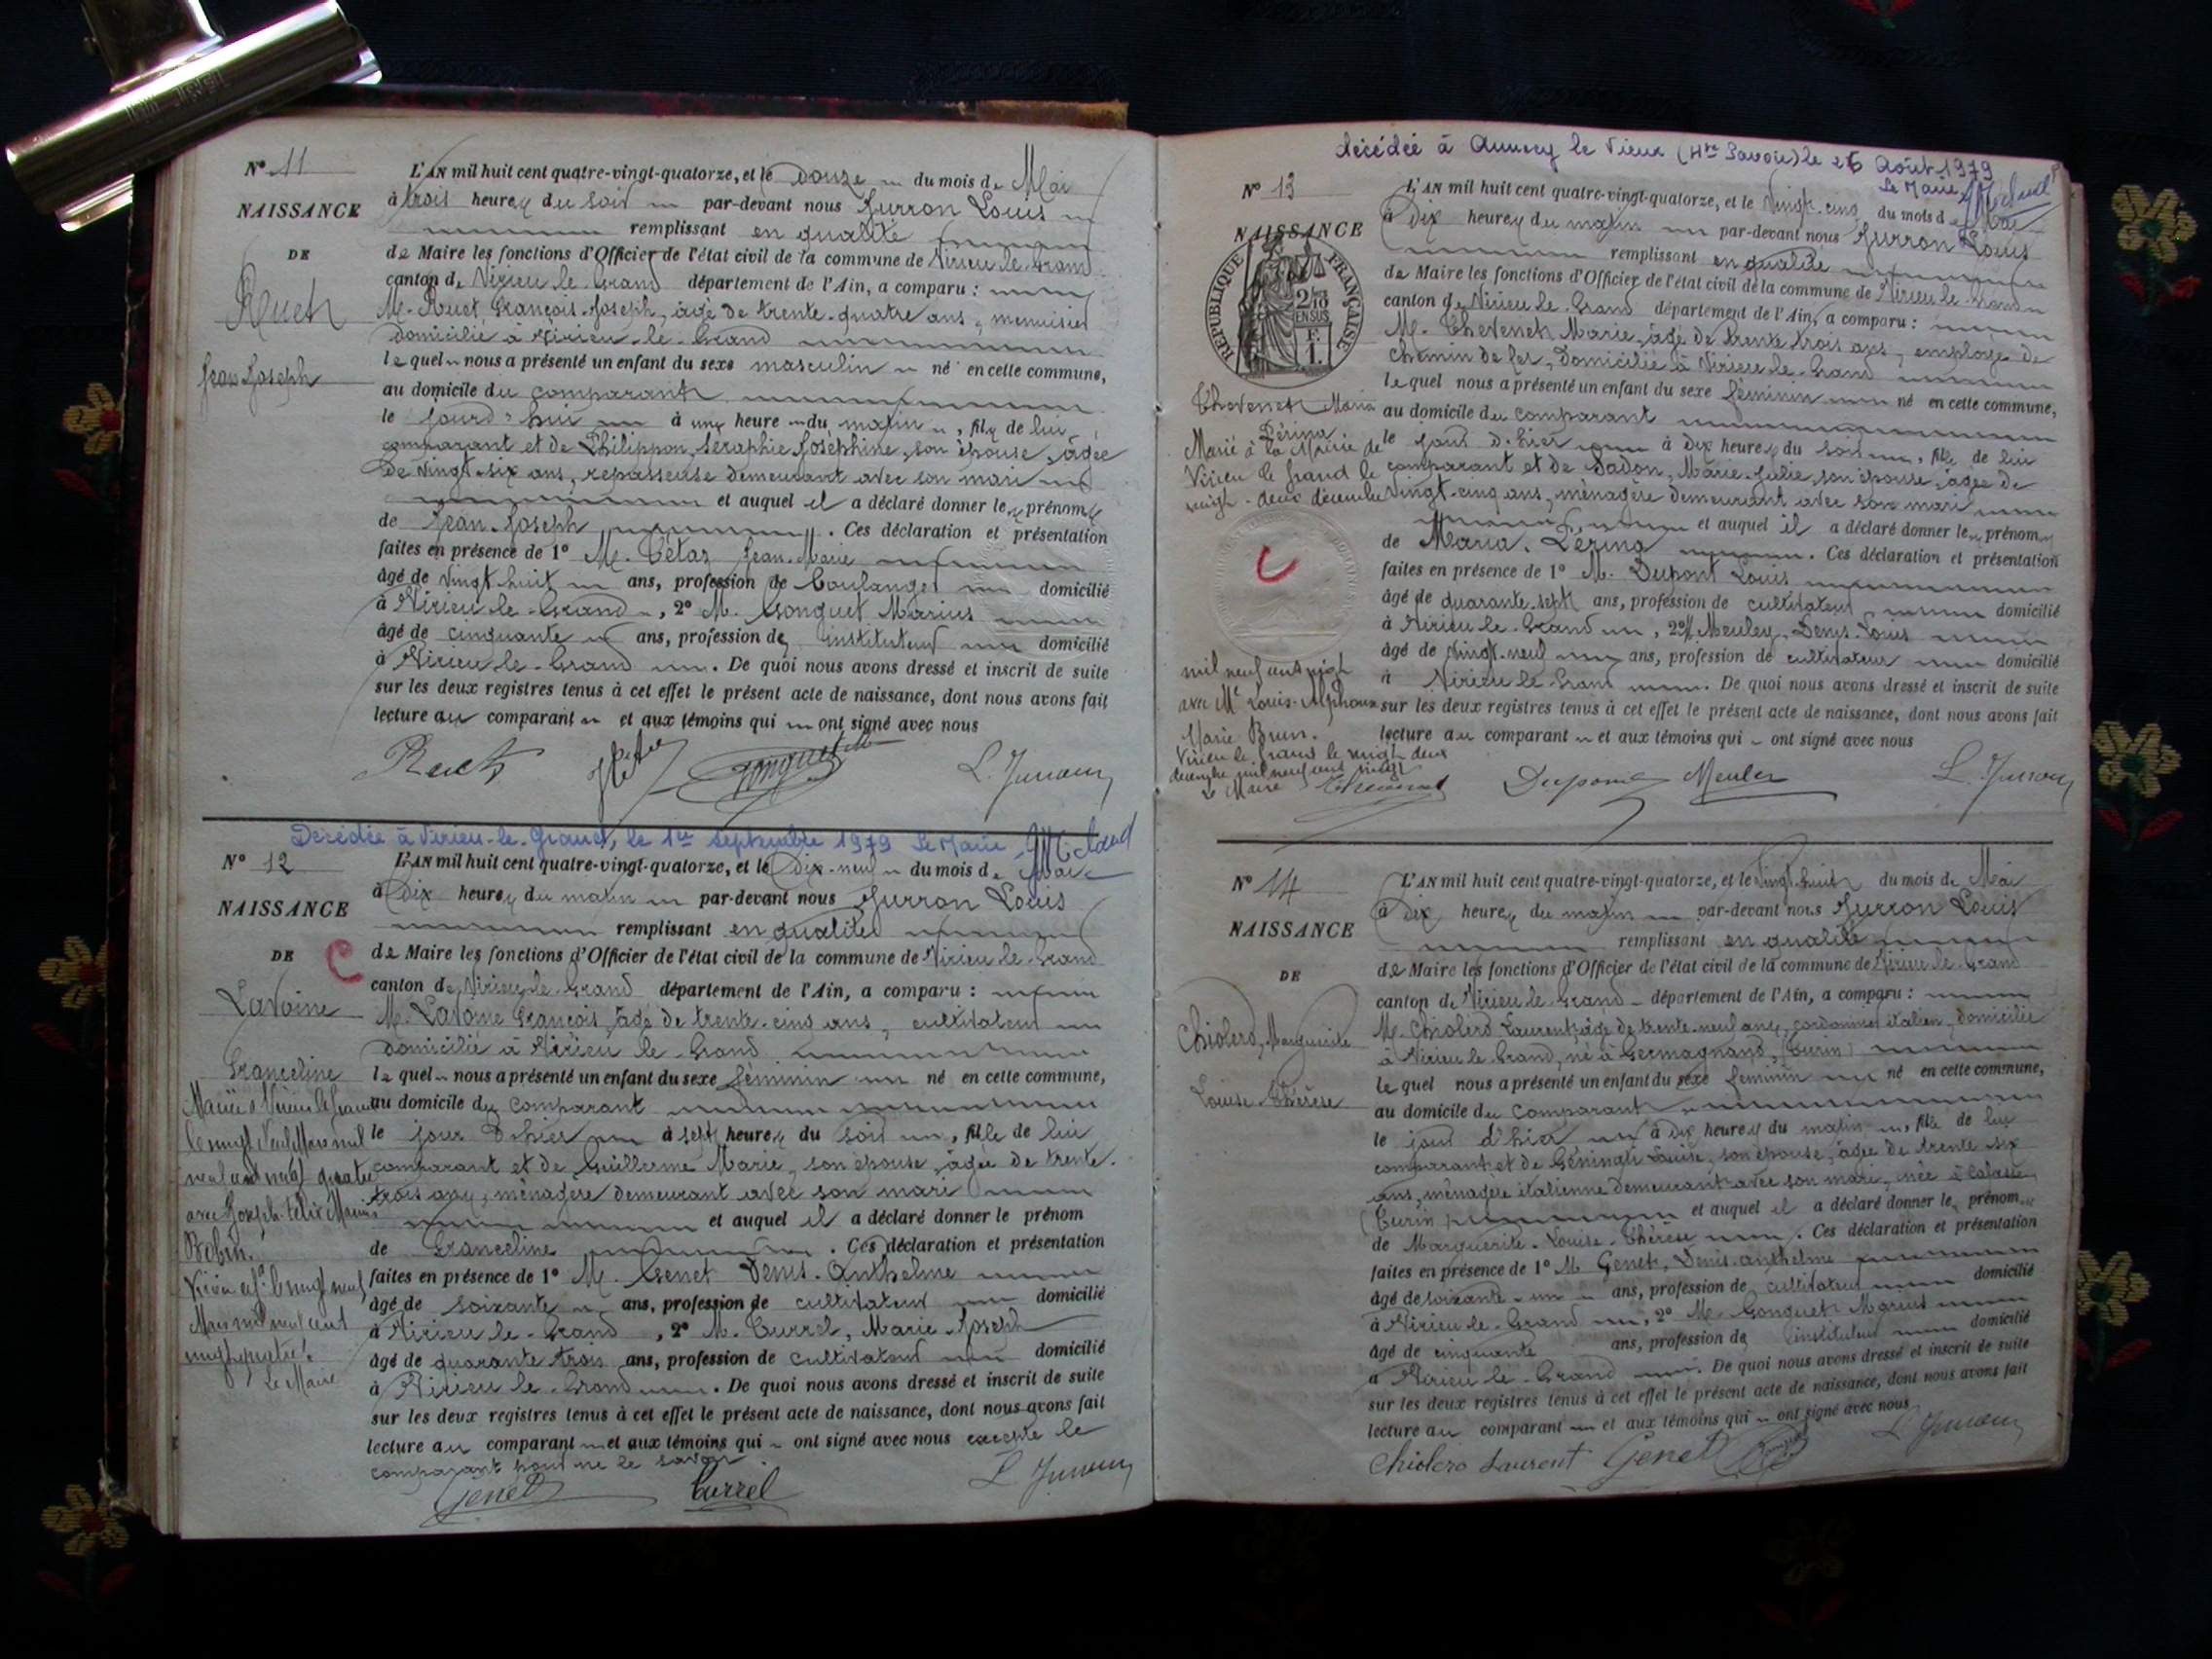 N° 11
NAISSANCE
DE
Ruet
Jean Joseph
L'AN mil huit cent quatre-vingt-quatorze, et le douze du mois de Mai
à trois heures du soir par-devant nous Jurron Louis
remplissant en qualité
de Maire les fonctions d'Officier de l'état civil de la commune de Virieu-le-Grand
canton de Virieu-le-Grand département de l'Ain, a comparu :
M. Ruet François-Joseph, âgé de trente-quatre ans, menuisier
domicilié à Virieu-le-Grand
lequel nous a présenté un enfant du sexe masculin né en cette commune,
au domicile du comparant
le jourd'hui à une heure du matin, fils de lui
comparant et de Philippon, Séraphie Joséphine, son épouse, âgée
de vingt-six ans, repasseuse demeurant avec son mari
et auquel il a déclaré donner les prénoms
de Jean-Joseph. Ces déclaration et présentation
faites en présence de 1° M. Tétaz Jean-Marie
âgé de vingt huit ans, profession de boulanger domicilié
à Virieu-le-Grand, 2° M. Gonguet Marius
âgé de cinquante ans, profession de instituteur domicilié
à Virieu-le-Grand. De quoi nous avons dressé et inscrit de suite
sur les deux registres tenus à cet effet le présent acte de naissance, dont nous avons fait
lecture au comparant et aux témoins qui ont signé avec nous
Ruet Gonguet L. Jurron
Décédée à Virieu-le-Grand, le 1er septembre 1979 Le Maire
N° 12
NAISSANCE
DE
C
Lavoine
Franceline
Mariée à Virieu le Grand
le vingt neuf Mars mil
neuf cent vingt quatre
avec Joseph Félix Marius
Bobin.
Virieu le Gd le vingt neuf
Mars mil neuf cent
vingt quatre.
Le Maire
L'AN mil huit cent quatre-vingt-quatorze, et le dix-neuf du mois de Mai
à dix heures du matin par-devant nous Jurron Louis
remplissant en qualité
de Maire les fonctions d'Officier de l'état civil de la commune de Virieu-le-Grand
canton de Virieu-le-Grand département de l'Ain, a comparu :
M. Lavoine François, âgé de trente-cinq ans, cultivateur
domicilié à Virieu-le-Grand
lequel nous a présenté un enfant du sexe féminin né en cette commune,
au domicile du comparant
le jour d'hier à sept heures du soir, fille de lui
comparant et de Guillerme Marie, son épouse, âgée de trente-
trois ans, ménagère demeurant avec son mari
et auquel il a déclaré donner le prénom
de Franceline. Ces déclaration et présentation
faites en présence de 1° M. Genet Denis-Anthelme
âgé de soixante ans, profession de cultivateur domicilié
à Virieu-le-Grand, 2° M. Currel, Marie-Joseph
âgé de quarante trois ans, profession de cultivateur domicilié
à Virieu-le-Grand. De quoi nous avons dressé et inscrit de suite
sur les deux registres tenus à cet effet le présent acte de naissance, dont nous avons fait
lecture au comparant et aux témoins qui ont signé avec nous excepté le
comparant pour ne le savoir.
Genet Currel L. Jurron
décédée à Annecy le Vieux (Hte Savoie) le 26 Août 1979
Le Maire
N° 13
NAISSANCE
RÉPUBLIQUE FRANÇAISE
2/10 EN SUS
F. 1.
Thevenet Maria
Dérina
Marié à la Mairie de
Virieu le Grand le
vingt-deux décembre
C
mil neuf cent vingt
avec Mr Louis-Alphonse
Marie Brun.
Virieu le Grand le vingt deux
décembre mil neuf cent vingt
Le Maire
L'AN mil huit cent quatre-vingt-quatorze, et le vingt-cinq du mois de Mai
à dix heures du matin par-devant nous Jurron Louis
remplissant en qualité
de Maire les fonctions d'Officier de l'état civil de la commune de Virieu-le-Grand
canton de Virieu-le-Grand département de l'Ain, a comparu :
M. Thevenet Marie, âgé de trente trois ans, employé de
chemin de fer, domicilié à Virieu-le-Grand
lequel nous a présenté un enfant du sexe féminin né en cette commune,
au domicile du comparant
le jour d'hier à dix heures du soir, fille de lui
comparant et de Dadon, Marie-Julie, son épouse, âgée de
vingt-cinq ans, ménagère demeurant avec son mari
et auquel il a déclaré donner les prénoms
de Maria, Dérina. Ces déclaration et présentation
faites en présence de 1° M. Dupont Louis
âgé de quarante-sept ans, profession de cultivateur domicilié
à Virieu-le-Grand, 2° M. Meuley, Denys-Louis
âgé de vingt-neuf ans, profession de cultivateur domicilié
à Virieu-le-Grand. De quoi nous avons dressé et inscrit de suite
sur les deux registres tenus à cet effet le présent acte de naissance, dont nous avons fait
lecture au comparant et aux témoins qui ont signé avec nous
Thevenet Dupont Meuley L. Jurron
N° 14
NAISSANCE
DE
Chiolero, Marguerite
Louise-Thérèse
L'AN mil huit cent quatre-vingt-quatorze, et le vingt-huit du mois de Mai
à dix heures du matin par-devant nous Jurron Louis
remplissant en qualité
de Maire les fonctions d'Officier de l'état civil de la commune de Virieu-le-Grand
canton de Virieu-le-Grand département de l'Ain, a comparu :
M. Chiolero Laurent, âgé de trente-neuf ans, cordonnier italien, domicilié
à Virieu-le-Grand, né à Germagnano, (Turin)
lequel nous a présenté un enfant du sexe féminin né en cette commune,
au domicile du comparant
le jour d'hier à dix heures du matin, fille de lui
comparant et de Géninati Louise, son épouse, âgée de trente six
ans, ménagère italienne demeurant avec son mari, née à
(Turin) et auquel il a déclaré donner les prénoms
de Marguerite-Louise-Thérèse. Ces déclaration et présentation
faites en présence de 1° M. Genet, Denis-anthelme
âgé de soixante-un ans, profession de cultivateur domicilié
à Virieu-le-Grand, 2° M. Gonguet Marius
âgé de cinquante ans, profession de instituteur domicilié
à Virieu-le-Grand. De quoi nous avons dressé et inscrit de suite
sur les deux registres tenus à cet effet le présent acte de naissance, dont nous avons fait
lecture au comparant et aux témoins qui ont signé avec nous
Chiolero Laurent Genet L. Jurron